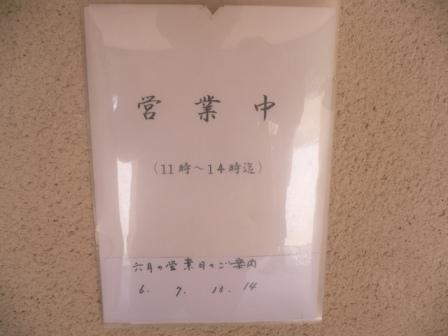 営業中
(11時～14時迄)
六月の営業日のご案内
6. 7. 14